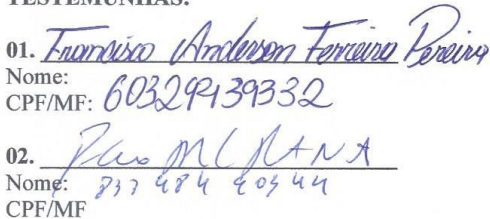 TESTEMUNHAS:
01. Francisco Anderson Ferreira Pereira
Nome:
CPF/MF: 60329939332
02.
Nome: 837 484 403 44
CPF/MF